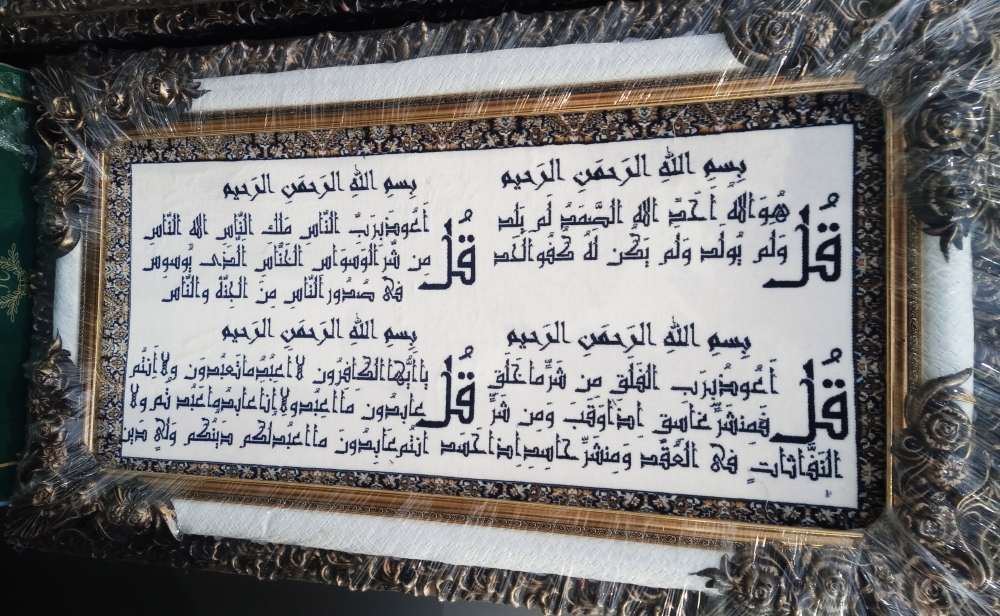 بِسمِ اللهِ الرَحمَنِ الرَحيمِ
قُل هُوَ اللهُ اَحَدٌ اللهُ الصَّمَدُ لَم يَلِد
وَلَم يُولَد وَلَم يَكُن لَهُ كُفُواً اَحَد
بِسمِ اللهِ الرَحمَنِ الرَحيمِ
قُل اَعُوذُ بِرَبِّ النّاسِ مَلِكِ النّاسِ اِلهِ النّاسِ
مِن شَرِّ الوَسوَاسِ الخَنّاسِ الَّذى يُوَسوِسُ
فى صُدُورِ النّاسِ مِنَ الجِنَّةِ وَالنّاسِ
بِسمِ اللهِ الرَحمَنِ الرَحيمِ
قُل اَعُوذُ بِرَبِ الفَلَقِ مِن شَرِّ ما خَلَق
وَمِن شَرِّ غاسِقٍ اِذا وَقَب وَمِن شَرِّ
النَفّاثاتِ فِى العُقَدِ وَمِن شَرِّ حاسِدٍ اِذا حَسَد
بِسمِ اللهِ الرَحمَنِ الرَحيمِ
قُل يا اَيُّهَا الكافِرُونَ لا اَعبُدُ ما تَعبُدُونَ وَلا اَنتُم
عابِدُونَ ما اَعبُدُ وَلا اَنا عابِدٌ ما عَبَدتُم وَلا
اَنتُم عابِدُونَ ما اَعبُد لَكُم دينُكُم وَلِيَ دين